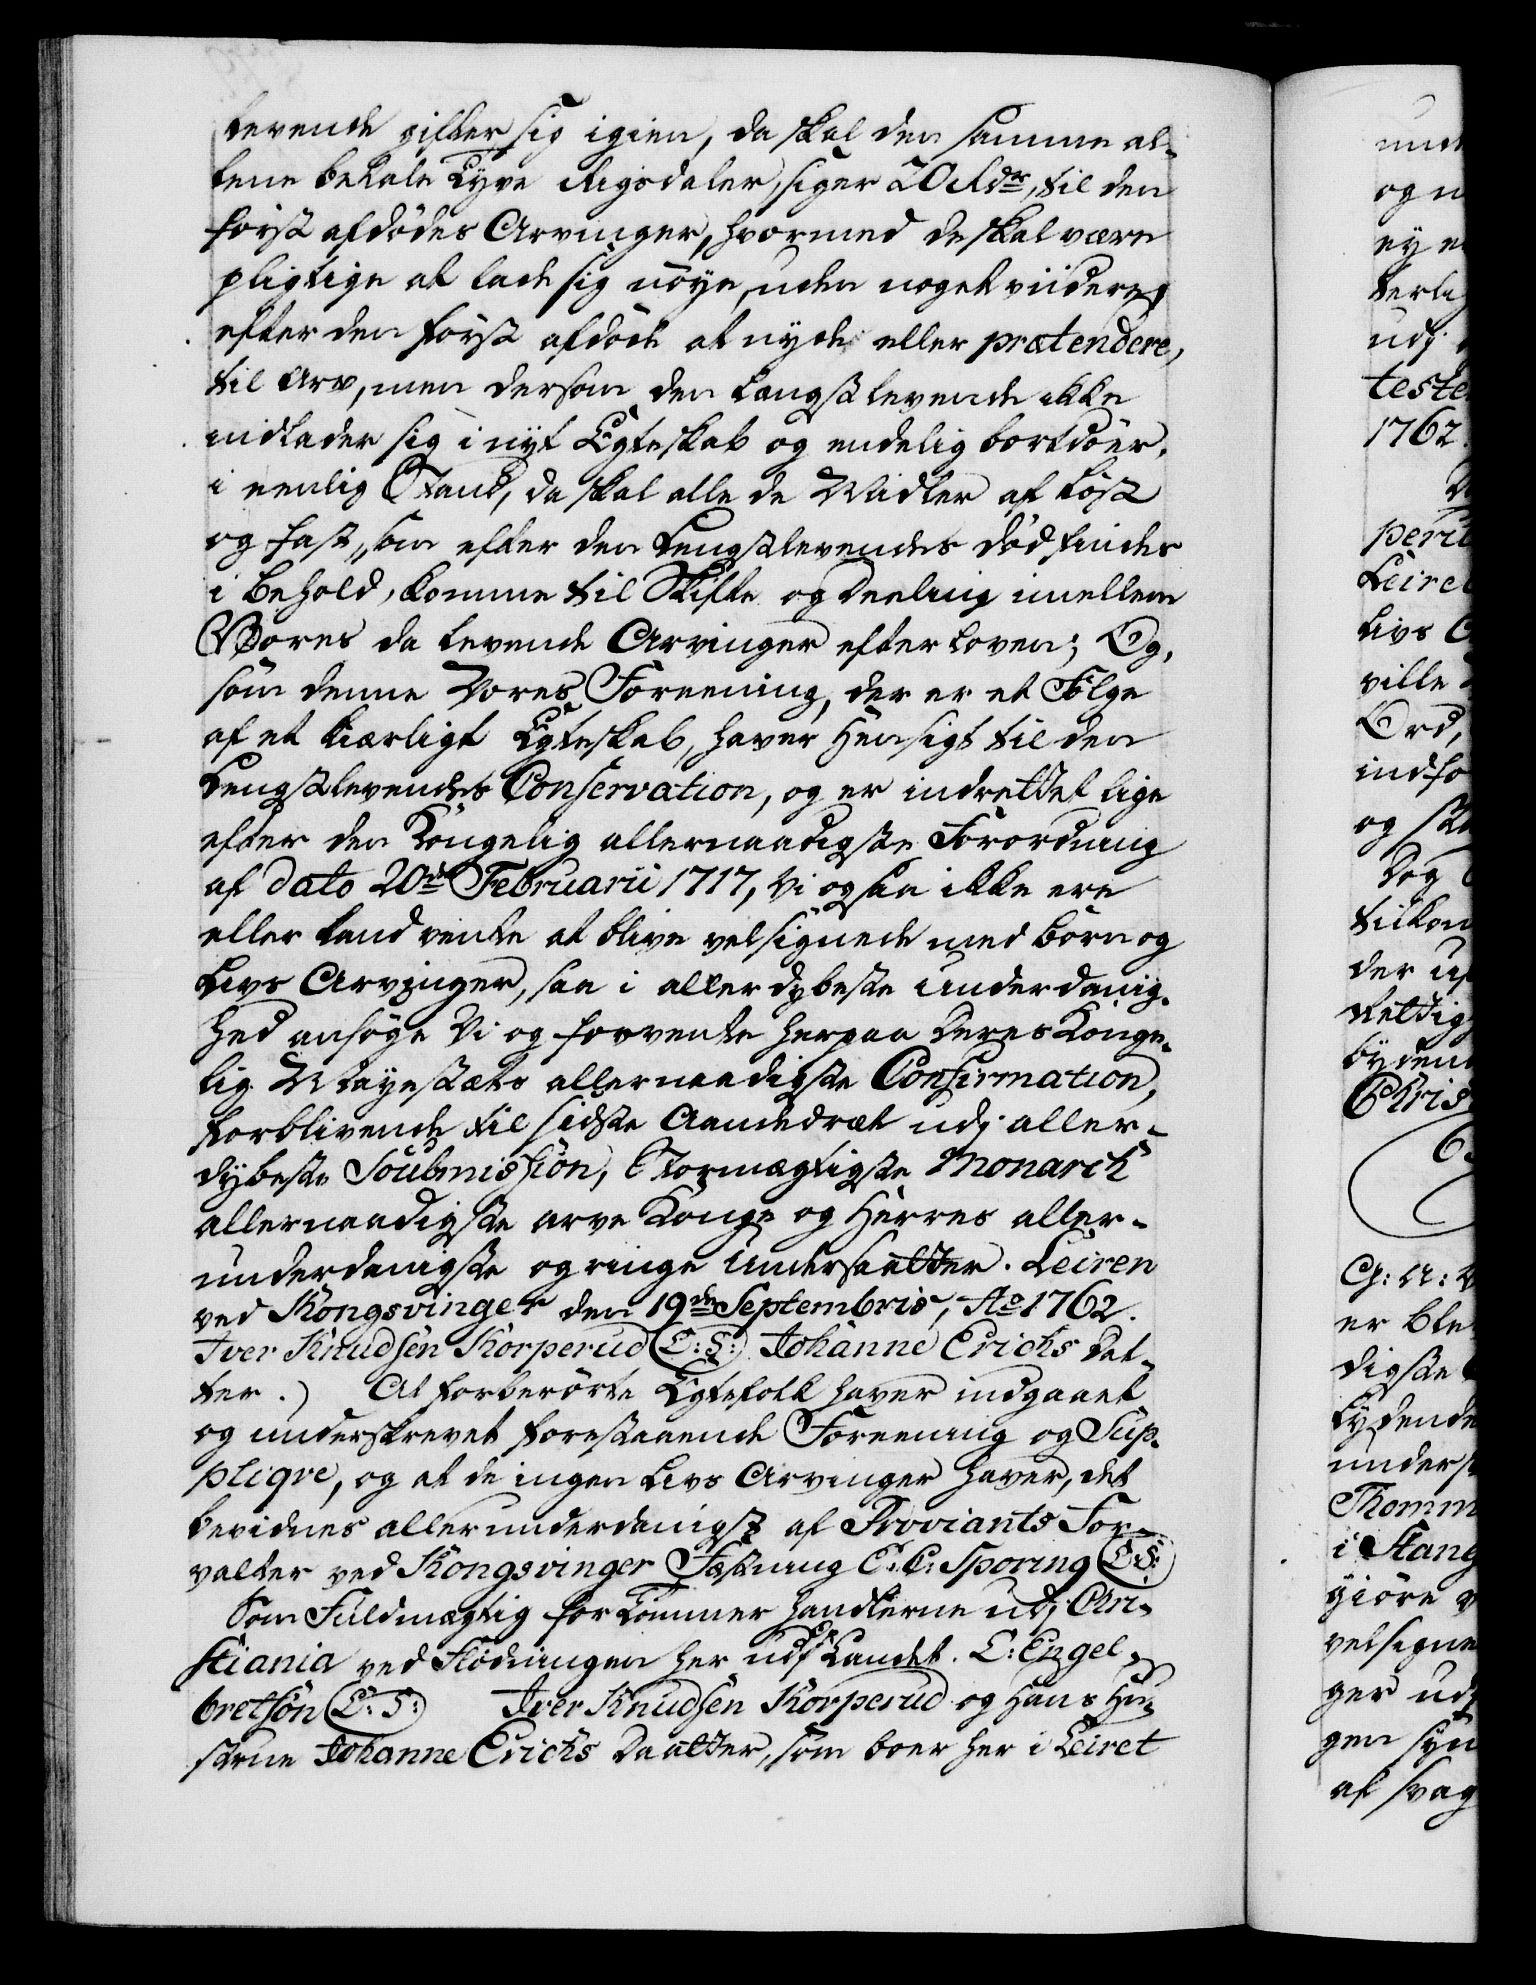 levende gifter sig igien, da skal den samme al-
lene betale Tyve Rigsdaler, siger 20 Rdr, til den
först afdödes Arvinger, hvormed de skal være
pligtige at lade sig nöye, uden noget viidere
efter den först afdöde at nyde eller prætendere,
til Arv, men dersom den langst levende ikke
indlader sig i nyt Egteskab og endelig bortdöer,
i eenlig Stand, da skal alle de Midler af löst
og fast, som efter den Lengstlevendes död findes
i behold, komme til Skifte og deeling imellem
Vores da levende Arvinger efter Loven; Og,
som denne Vores Foreening, der er et Fölge
af et kiærligt Egteskab, haver Hensigt til den
Lengstlevendes Conservation, og er indrettet lige
efter den Kongelig allernaadigste Forordning
af dato 20de Februarii 1717, Vi ogsaa ikke ere
eller kand vente at blive velsignede med Börn og
Livs Arvinger, saa i allerdybeste Underdanig-
hed ansöge Vi og forvente herpaa Deres Konge-
lig Mayestæts allernaadigste Confirmation,
forblivende til sidste Aandedræt udj aller-
dybeste Soubmission, Stormægtigste Monarch
allernaadigste arve Konge og Herres aller-
underdanigste og ringe Undersaatter. Leiren
ved Kongsvinger den 19de Septembris, Ao 1762.
Iver Knudsen Korperud (L: S:) Johanne Erichs Dat-
ter.) At forberörte Egtefolk haver indgaaet
og underskrevet forestaaende Foreening og Sup-
pliqve, og at de ingen Livs Arvinger haver, det
bevidnes allerunderdanigst af Proviants For-
valter ved Kongsvinger Festning C: C: Sporing (L: S:)
Som Fuldmægtig for Tömmer Handlerne udj Chri-
stiania ved Flödningen her udj Landet. L: Engel-
bretsön (L: S:) Iver Knudsen Korperud og Hans Hu-
strue Johanne Erichs Daatter, som boer her i Leiret